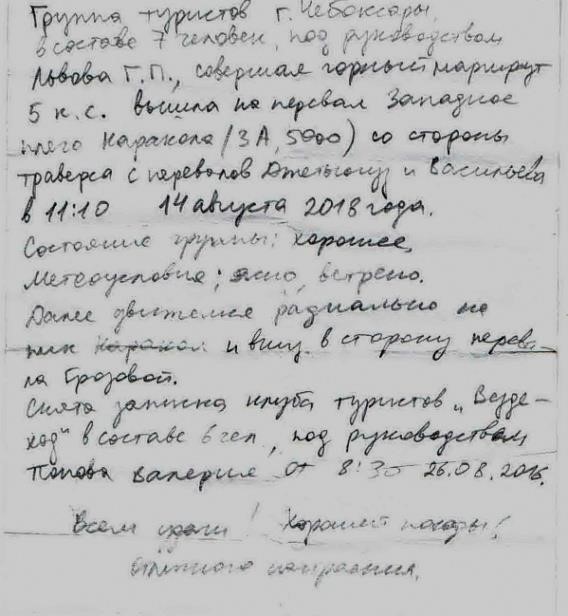 Группа туристов г. Чебоксары,
в составе 7 человек, под руководством
Львова Г.П., совершая горный маршрут
5 к.с. вышла на перевал Западное
плечо Каракола (3А, 5000) со стороны
траверса с перевалов Джетыогуз и Васильева
в 11:10 14 августа 2018 года.
Состояние группы: хорошее,
Метеоусловия: ясно, ветрено.
Далее движемся радиально на
пик и вниз в сторону перева-
ла Грозовой.
Снята записка клуба туристов „Везде-
ход" в составе 6 чел, под руководством
Попова Валерия от 8:30 26.08.2016.
Всем удачи! Хорошей погоды!
Отличного настроения.